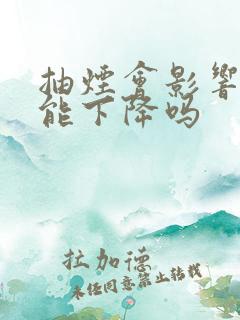 抽煙會影響
能下降嗎
拉加德
未经同意禁止转载